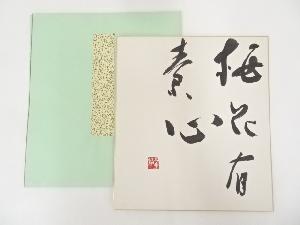 梅花有
素心